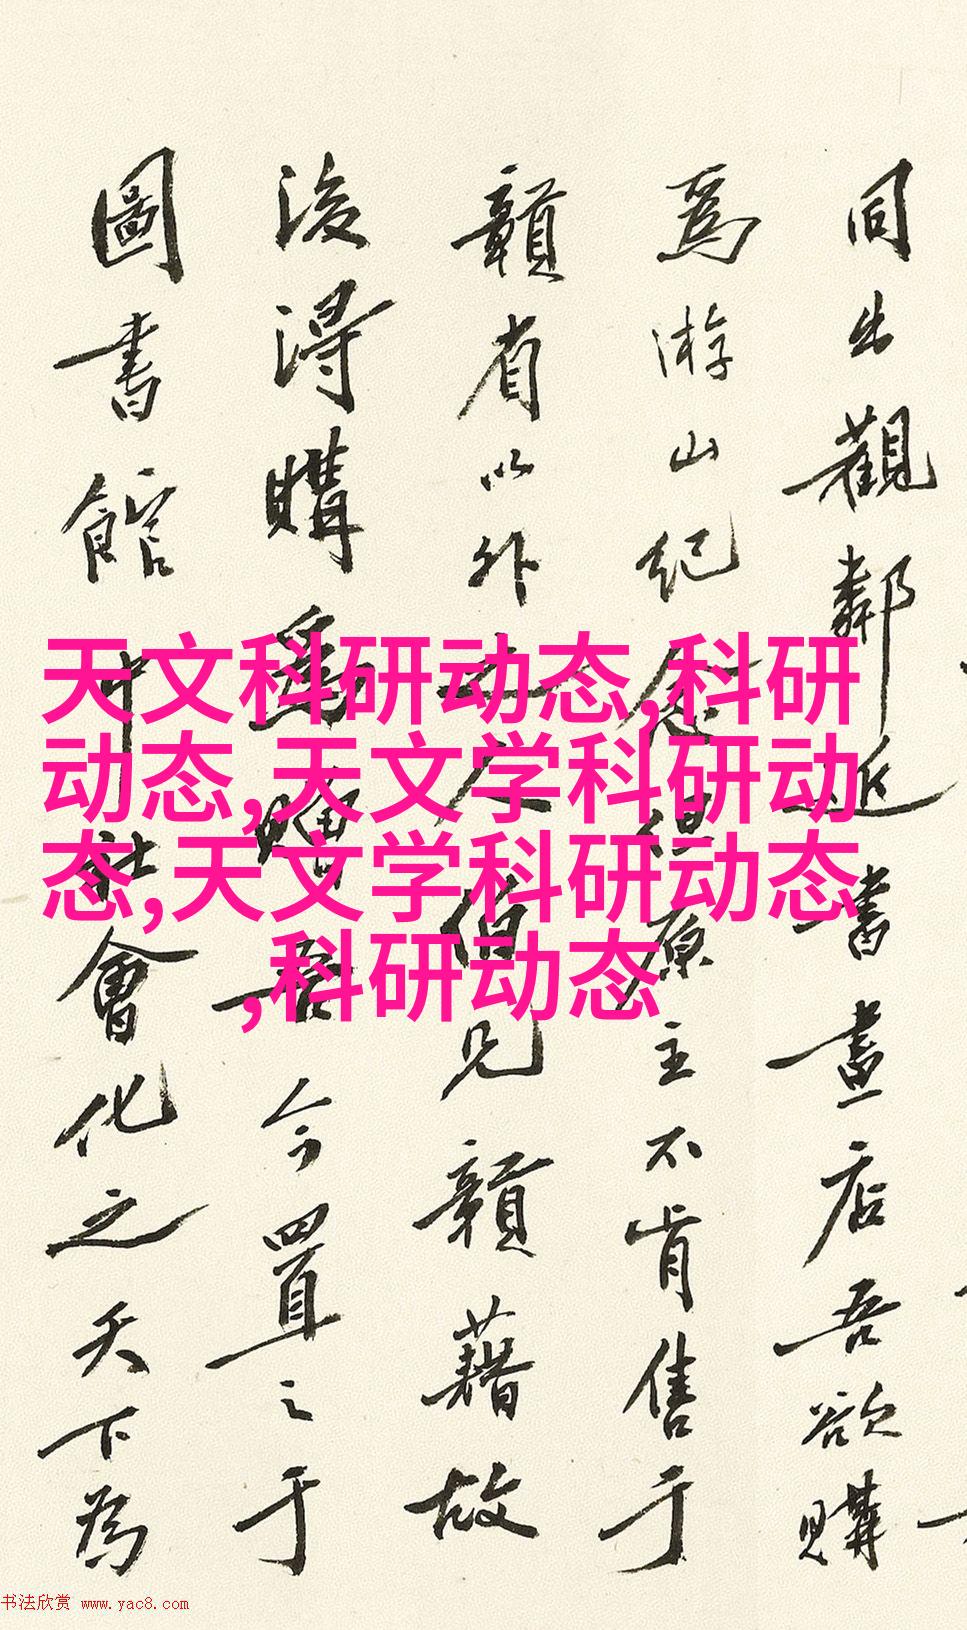 同出觀鄰近書畫店吾欲購
爲游山紀念但原主不肯售于
贛省以外之人伯兄贛藉故
後得購爲贈吾今置之于
圖書館中社會化之天下為
天文科研动态,科研
动态,天文学科研动
态,天文学科研动态
,科研动态
书法欣赏 www.yac8.com